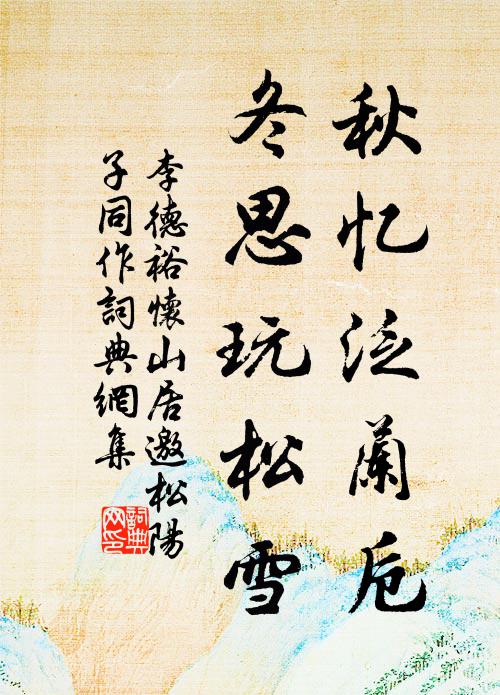 秋忆泛兰卮
冬思玩松雪
李德裕懷山居邀松陽
子同作詞典網集